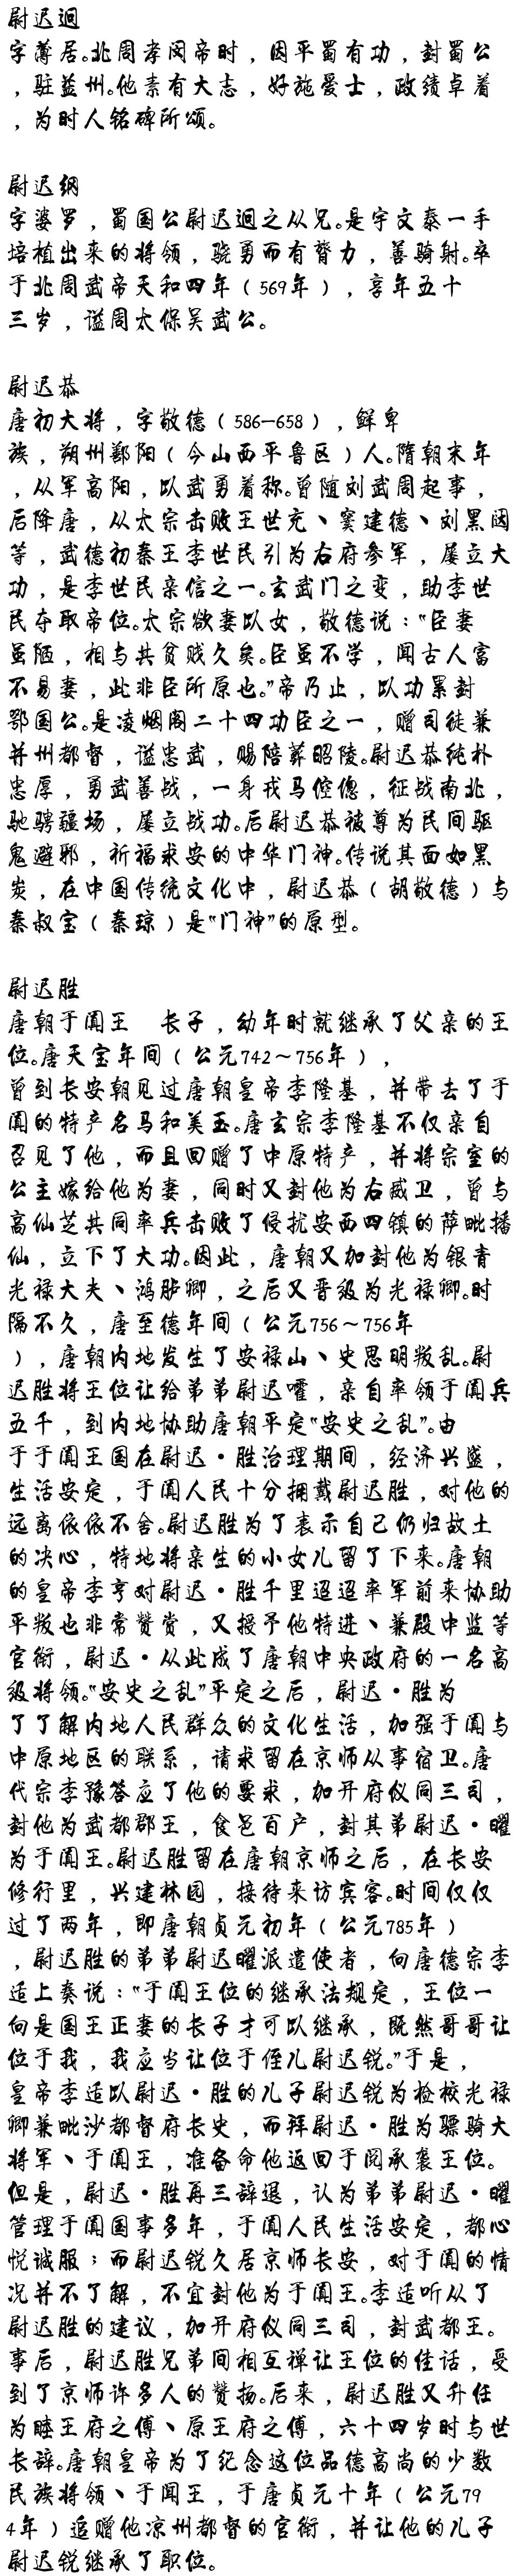 尉迟迥
字薄居。北周孝闵帝时，因平蜀有功，封蜀公
，驻益州。他素有大志，好施爱士，政绩卓着
，为时人铭碑所颂。
尉迟纲
字婆罗，蜀国公尉迟迥之从兄。是宇文泰一手
培植出来的将领，骁勇而有膂力，善骑射。卒
于北周武帝天和四年（569年），享年五十
三岁，谥周太保吴武公。
尉迟恭
唐初大将，字敬德（586—658），鲜卑
族，朔州鄯阳（今山西平鲁区）人。隋朝末年
，从军高阳，以武勇着称。曾随刘武周起事，
后降唐，从太宗击败王世充、窦建德、刘黑闼
等，武德初秦王李世民引为右府参军，屡立大
功，是李世民亲信之一。玄武门之变，助李世
民夺取帝位。太宗欲妻以女，敬德说：“臣妻
虽陋，相与共贫贱久矣。臣虽不学，闻古人富
不易妻，此非臣所原也。”帝乃止，以功累封
鄂国公。是凌烟阁二十四功臣之一，赠司徒兼
并州都督，谥忠武，赐陪葬昭陵。尉迟恭纯朴
忠厚，勇武善战，一身戎马倥偬，征战南北，
驰骋疆场，屡立战功。后尉迟恭被尊为民间驱
鬼避邪，祈福求安的中华门神。传说其面如黑
炭，在中国传统文化中，尉迟恭（胡敬德）与
秦叔宝（秦琼）是“门神”的原型。
尉迟胜
唐朝于阗王　长子，幼年时就继承了父亲的王
位。唐天宝年间（公元742～756年），
曾到长安朝见过唐朝皇帝李隆基，并带去了于
阗的特产名马和美玉。唐玄宗李隆基不仅亲自
召见了他，而且回赠了中原特产，并将宗室的
公主嫁给他为妻，同时又封他为右威卫，曾与
高仙芝共同率兵击败了侵扰安西四镇的萨毗播
仙，立下了大功。因此，唐朝又加封他为银青
光禄大夫、鸿胪卿，之后又晋级为光禄卿。时
隔不久，唐至德年间（公元756～756年
），唐朝内地发生了安禄山、史思明叛乱。尉
迟胜将王位让给弟弟尉迟曜，亲自率领于阗兵
五千，到内地协助唐朝平定“安史之乱”。由
于于阗王国在尉迟·胜治理期间，经济兴盛，
生活安定，于阗人民十分拥戴尉迟胜，对他的
远离依依不舍。尉迟胜为了表示自己仍归故土
的决心，特地将亲生的小女儿留了下来。唐朝
的皇帝李亨对尉迟·胜千里迢迢率军前来协助
平叛也非常赞赏，又授予他特进、兼殿中监等
官衔，尉迟·从此成了唐朝中央政府的一名高
级将领。“安史之乱”平定之后，尉迟·胜为
了了解内地人民群众的文化生活，加强于阗与
中原地区的联系，请求留在京师从事宿卫。唐
代宗李豫答应了他的要求，加开府仪同三司，
封他为武都郡王，食邑百户，封其弟尉迟·曜
为于阗王。尉迟胜留在唐朝京师之后，在长安
修行里，兴建林园，接待来访宾客。时间仅仅
过了两年，即唐朝贞元初年（公元785年）
，尉迟胜的弟弟尉迟曜派遣使者，向唐德宗李
适上奏说：“于阗王位的继承法规定，王位一
向是国王正妻的长子才可以继承，既然哥哥让
位于我，我应当让位于侄儿尉迟锐。”于是，
皇帝李适以尉迟·胜的儿子尉迟锐为检校光禄
卿兼毗沙都督府长史，而拜尉迟·胜为骠骑大
将军、于阗王，准备命他返回于阅承袭王位。
但是，尉迟·胜再三辞退，认为弟弟尉迟·曜
管理于阗国事多年，于阗人民生活安定，都心
悦诚服；而尉迟锐久居京师长安，对于阗的情
况并不了解，不宜封他为于阗王。李适听从了
尉迟胜的建议，加开府仪同三司，封武都王。
事后，尉迟胜兄弟间相互禅让王位的佳话，受
到了京师许多人的赞扬。后来，尉迟胜又升任
为睦王府之傅、原王府之傅，六十四岁时与世
长辞。唐朝皇帝为了纪念这位品德高尚的少数
民族将领、于闻王，于唐贞元十年（公元79
4年）追赠他凉州都督的官衔，并让他的儿子
尉迟锐继承了职位。